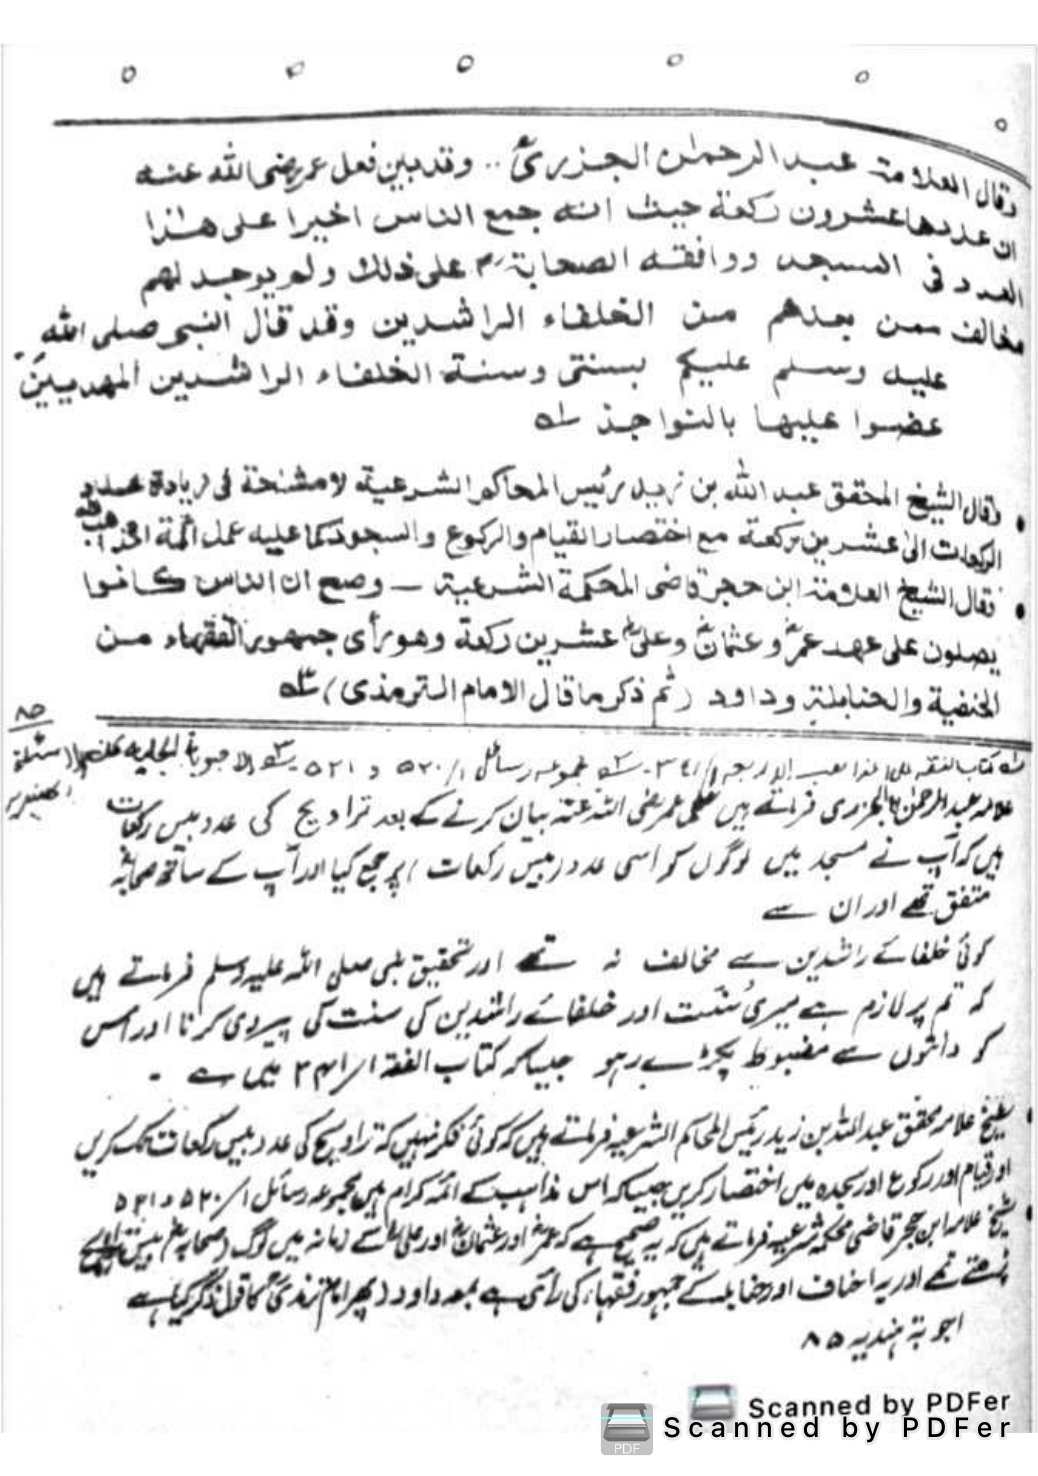 وقال العلامة عبد الرحمٰن الجزريؒ .. وقد بين فعل عمر رضى الله عنه
ان عددها عشرون ركعة حيث انه جمع الناس اخيرا على هٰذا
العدد فى المسجد ووافقه الصحابة رض على ذلك ولم يوجد لهم
مخالف ممن بعدهم من الخلفاء الراشدين وقد قال النبى صلى الله
عليه وسلم عليكم بسنتى وسنة الخلفاء الراشدين المهديين
عضوا عليها بالنواجذ
• وقال الشيخ المحقق عبد الله بن زيد رئيس المحاكم الشرعية لا مشنحة فى زيادة عدد
الركعات الى عشرين ركعة مع اختصار القيام والركوع والسجود كما عليه عمل ائمة المذاهب
• فقال الشيخ العلامة ابن حجر قاضى المحكمة الشرعية – وصح ان الناس كانوا
يصلون على عهد عمرؓ و عثمانؓ وعلىؓ عشرين ركعة وهو رأى جمهور الفقهاء من
الحنفية والحنابلة وداود (ثم ذكر ما قال الامام الترمذى)
كتاب الفقه على المذاهب الاربعہ ١/٣٤١ مجموعہ رسائل ١/٥٢٠ و ٥٢١ الاجوبة الجليه
٨٥
علامہ عبدالرحمٰن الجزری فرماتے ہیں فعل عمر رضی اللہ عنہ بیان کرنے کے بعد تراویح کی عدد بیس رکعات
ہیں کہ آپ نے مسجد میں لوگوں کو اسی عدد (بیس رکعات) پر جمع کیا اور آپ کے ساتھ صحابہؓ
متفق تھے اور ان سے
کوئی خلفائے راشدین سے مخالف نہ تھے اور تحقیق نبی صلی اللہ علیہ وسلم فرماتے ہیں
کہ تم پر لازم ہے میری سُنّت اور خلفائے راشدین کی سنت کی پیروی کرنا اور اس
کو دانتوں سے مضبوط پکڑے رہو جیسا کہ کتاب الفقہ ١/٣٤١ میں ہے ۔
• شیخ علامہ محقق عبداللہ بن زید رئیس المحاکم الشرعیہ فرماتے ہیں کہ کوئی فکر نہیں کہ تراویح کی عدد بیس رکعات تک کریں
اور قیام اور رکوع اور سجدہ میں اختصار کریں جیسا کہ اس مذاہب کے ائمہ کرام ہیں مجموعہ رسائل ١/٥٢٠ و ٥٢١
• شیخ علامہ ابن حجر قاضی محکمہ شرعیہ فرماتے ہیں کہ یہ صحیح ہے کہ عمرؓ اور عثمانؓ اور علیؓ کے زمانہ میں لوگ (صحابہؓ) بیس تراویح
پڑھتے تھے اور یہ احناف اور حنابلہ کے جمہور فقہاء کی رائے ہے بمعہ داود (پھر امام ترمذیؒ کا قول ذکر کیا) ہے
اجوبۃ ہندیہ ٨٥
Scanned by PDFer
Scanned by PDFer
PDF